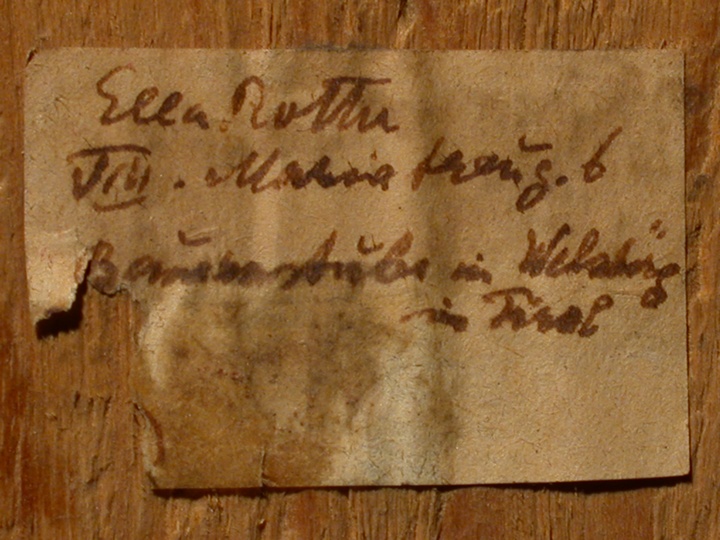 Ella Rothe
VIII. Maria treug. 6
Bauernstube in
in Tirol